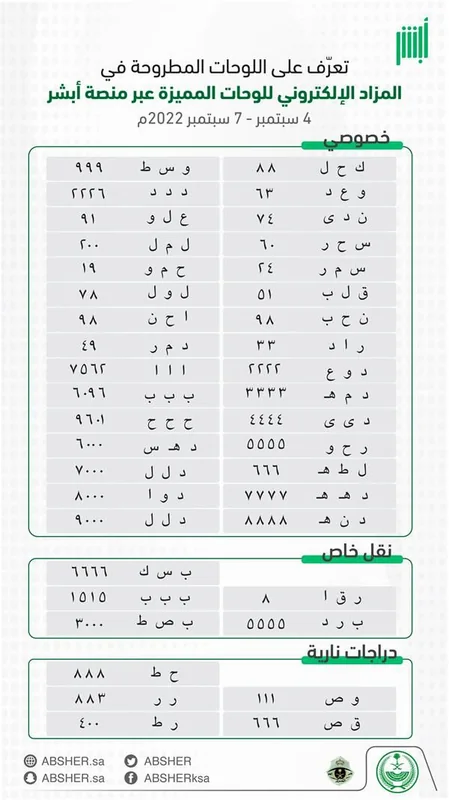 أبشر
تعرّف على اللوحات المطروحة في
المزاد الإلكتروني للوحات المميزة عبر منصة أبشر
4 سبتمبر - 7 سبتمبر 2022م
خصوصي
ك ح ل ٨٨ و س ط ٩٩٩
و ع د ٦٣ د د د ٢٢٢٦
ن د ى ٧٤ ع ل و ٩١
س ح ر ٦٠ ل م ل ٢٠٠
س م ر ٢٤ ح م و ١٩
ق ل ب ٥١ ل و ل ٧٨
ن ح ب ٩٨ ا ح ن ٩٨
ر ا د ٣٣ د م ر ٤٩
د و ع ٢٢٢٢ ا ا ا ٧٥٦٢
د م هـ ٣٣٣٣ ب ب ب ٦٠٩٦
د ى ى ٤٤٤٤ ح ح ح ٩٦٠١
ر ح و ٥٥٥٥ د هـ س ٦٠٠٠
ل ط هـ ٦٦٦ د ل ل ٧٠٠٠
د هـ هـ ٧٧٧٧ د و ا ٨٠٠٠
د ن هـ ٨٨٨٨ د ل ل ٩٠٠٠
نقل خاص
ب س ك ٦٦٦٦
ر ق ا ٨ ب ب ب ١٥١٥
ب ر د ٥٥٥٥ ب ص ط ٣٠٠٠
دراجات نارية
ح ط ٨٨٨
و ص ١١١ ر ر ٨٨٣
ق ص ٦٦٦ ر ط ٤٠٠
ABSHER.sa ABSHER
ABSHER.sa ABSHERksa